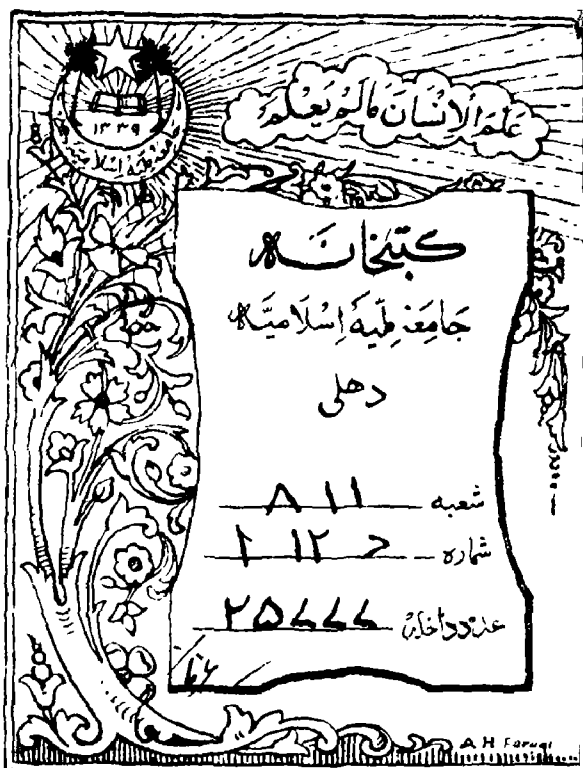 ١٣٣٩
جامعہ ملیہ اسلامیہ
عَلَّمَ الْاِنْسَانَ مَا لَمْ یَعْلَمْ
کتبخانہ
جامعہ ملیہ اسلامیہ
دھلی
شعبہ ٨١١
شمارہ
عدد داخلہ
A H Faruqi